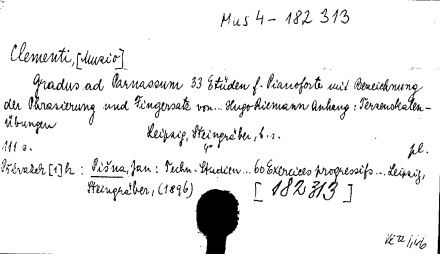 Mus 4 - 182 313
Clementi, [Muzio]
Gradus ad Parnassum 33 Etüden f. Pianoforte mit Bezeichnung
der Phrasierung und Fingersatz von... Hugo Riemann Anhang: Terzenskalen-
übungen
Leipzig, Steingräber, b. r.
4°
111 s. pl.
Přívazek [1] k: Pišna, Jan: Techn. Studien... 60 Exercices progressifs... Leipzig,
Steingräber, (1896) [182313]